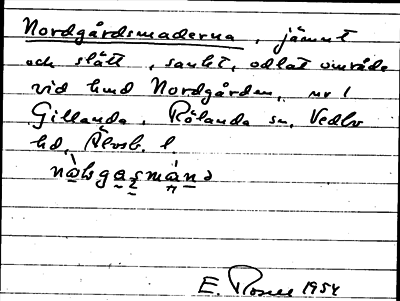 Nordgårdsmaderna, jämnt
och slätt, sankt, odlat område
vid hmd Nordgården, nr 1
Gillanda, Rölanda sn, Vedbo
hd, Älvsb. l.
E. Rosell 1954